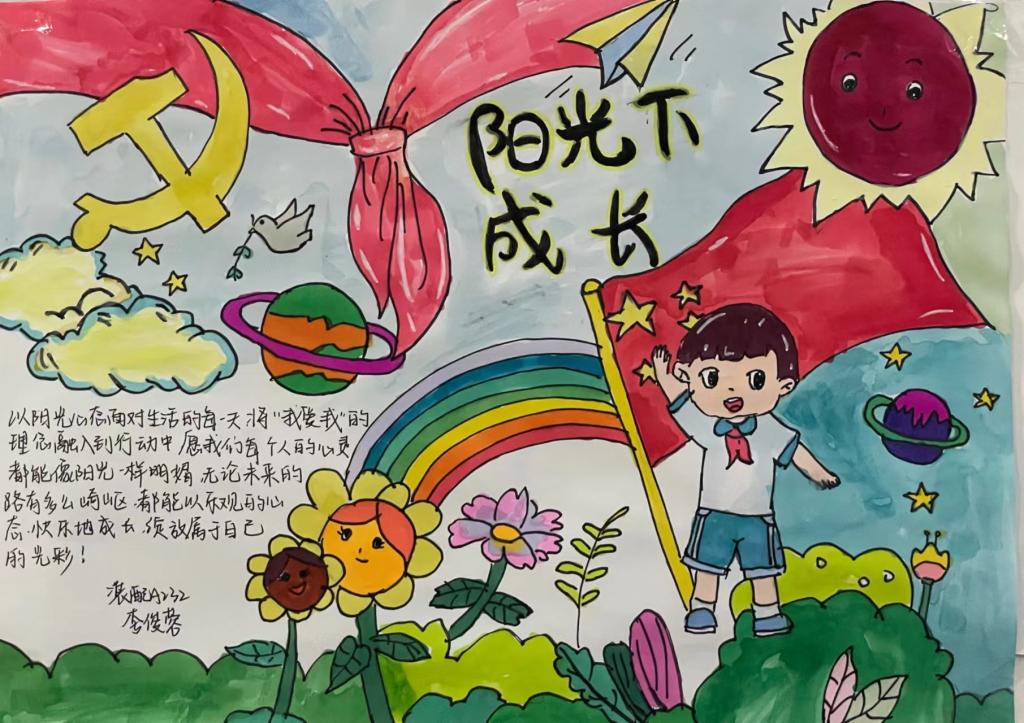 阳光下
成长
以阳光心态面对生活的每一天将“我爱我”的
理念融入到行动中愿我们每个人的心灵
都能像阳光一样明媚.无论未来的
路有多么崎岖.都能以乐观的心
态.快乐地成长.绽放属于自己
的光彩!
装配A232
李俊蓉